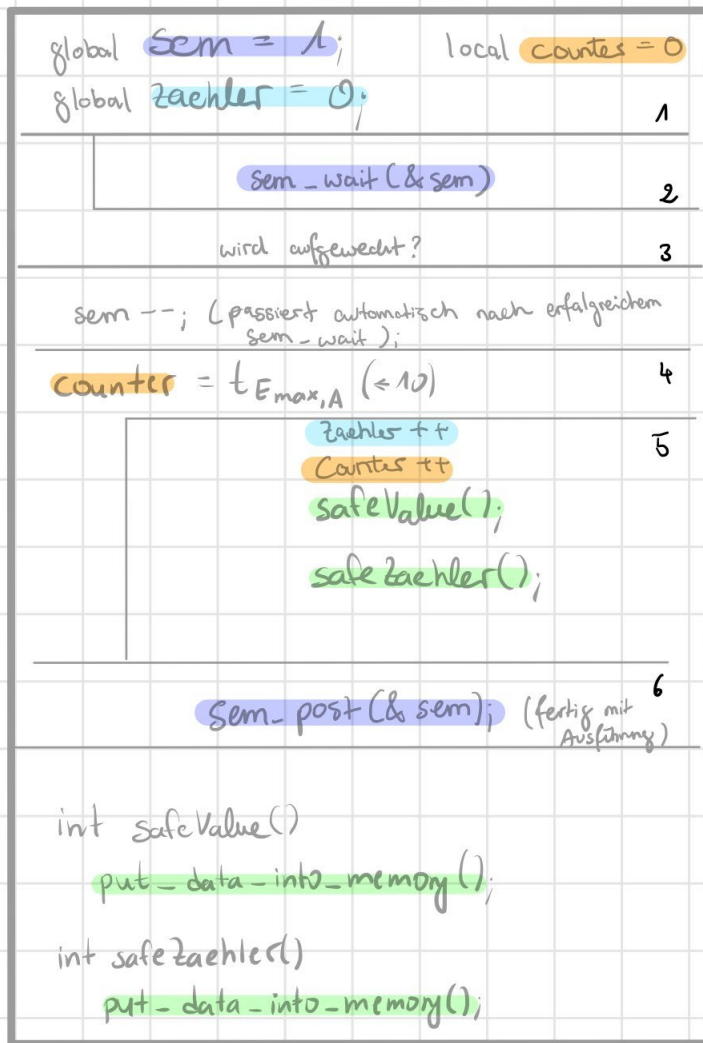 global sem = 1; local counter = 0
global zaehler = 0;
1
sem_wait(&sem)
2
wird aufgeweckt?
3
sem --; (passiert automatisch nach erfolgreichem
sem_wait);
counter = tEmax,A (<10)
4
zaehler ++
5
Counter ++
safeValue();
safeZaehler();
6
Sem_post(& sem); (fertig mit
Ausführung)
int safeValue()
put_data_into_memory();
int safeZaehler()
put_data_into_memory();